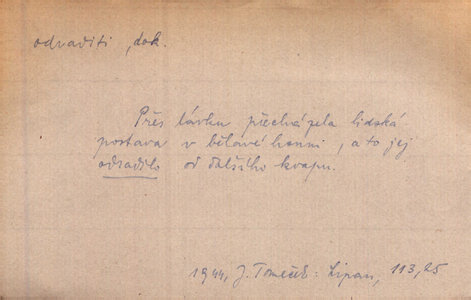 odraditi, dok.
Přes lávku přecházela lidská
postava v bělavé honni, a to jej
odradilo od dalšího kvapu.
1944, J. Tomeček: Lipan, 113, 25